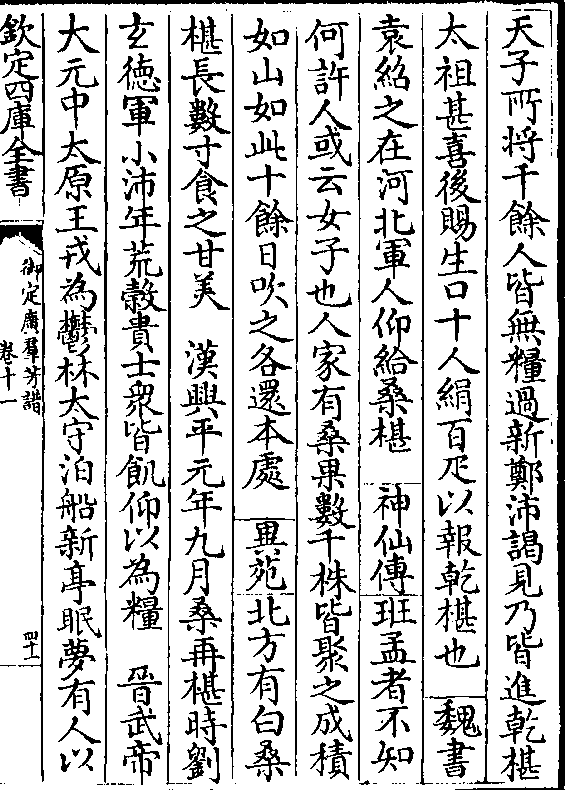 天子所将千餘人皆無糧過新鄭沛謁見乃皆進乾椹
太祖甚喜後賜生口十人絹百疋以報乾椹也　魏書
袁紹之在河北軍人仰給桑椹　神仙傳班孟者不知
何許人或云女子也人家有桑果數千株皆聚之成積
如山如此十餘日吹之各還本處　異苑北方有白桑
椹長數寸食之甘美　漢興平元年九月桑再椹時劉
玄德軍小沛年荒穀貴士衆皆飢仰以為糧　晉武帝
大元中太原王戎為鬱林太守泊船新亭眠夢有人以
欽定四庫全書
御定廣羣芳譜
卷十一
四十一